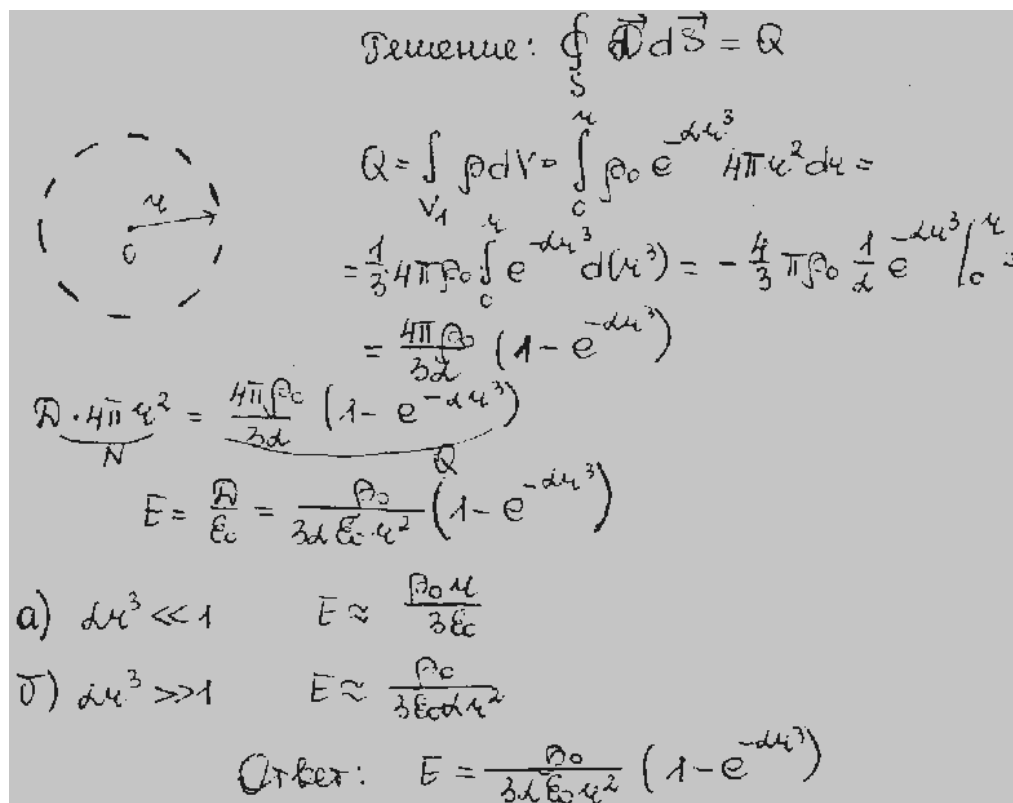 Решение: ∮_S D⃗ dS⃗ = Q
Q = ∫_{V₁} ρdV = ∫_0^r ρ₀ e^{-αr³} 4πr² dr =
r
0
= 1/3 4πρ₀ ∫_0^r e^{-αr³} d(r³) = - 4/3 πρ₀ 1/α e^{-αr³} |_0^r =
= 4πρ₀/3α (1 - e^{-αr³})
D · 4πr² = 4πρ₀/3α (1 - e^{-αr³})
N Q
E = D/ε₀ = ρ₀/(3αε₀·r²) (1 - e^{-αr³})
а) αr³ << 1 E ≈ ρ₀r/3ε₀
б) αr³ >> 1 E ≈ ρ₀/(3ε₀αr²)
Ответ: E = ρ₀/(3αε₀r²) (1 - e^{-αr³})